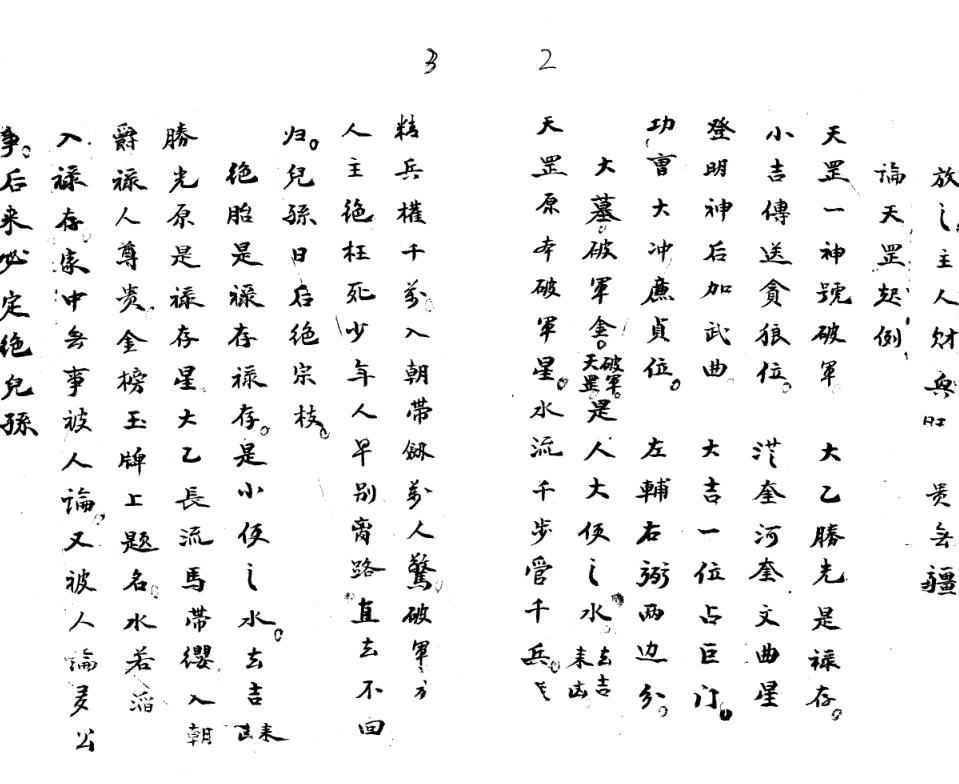 2
放之主人財興旺 貴無疆
論天罡起例
天罡一神號破軍 大乙勝光是禄存。
小吉傳送貪狼位。 從奎河奎文曲星
登明神后加武曲 大吉一位占巨门。
功曹大冲廉貞位。 左輔右弼两边分。
大墓破軍金。破軍天罡是人大便之水。去吉来凶
天罡原本破軍星。水流千步管千兵。
3
精兵權千萬入朝带劔萬人驚破軍方
人主絶枉死少年人早别離路直去不回
归。兒孫日后絶宗枝。
絶胎是禄存禄存。是小便之水。去吉来凶
勝光原是禄存星大乙長流馬帶纓入朝
爵禄人尊贵金榜玉牌上題名水若
入禄存家中無事被人論。又被人論多公
事。后来必定絶兒孫